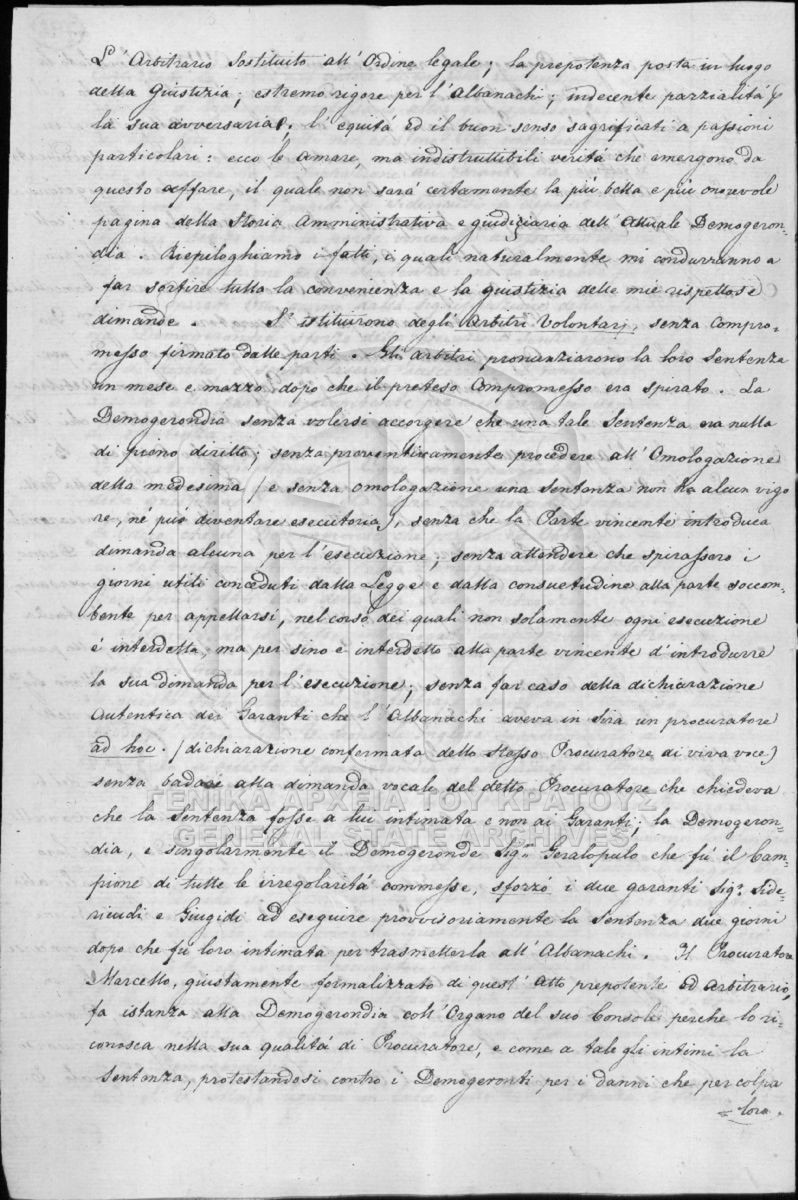 L'Arbitrario Sostituito all'Ordine legale; la prepotenza posta in luogo
della Giustizia; estremo rigore per l'Albanachi; indecente parzialitá p
la sua avversaria; l'equitá ed il buon senso sagrificati a passioni
particolari: ecco le amare, ma indistruttibili veritá che emergono da
questo affare, il quale non sará certamente la piú bella e piú onorevole
pagina della Storia Amministrativa e giudiziaria dell'Attuale Demogeron=
dia. Riepiloghiamo i fatti, i quali naturalmente mi condurranno a
far sortire tutta la convenienza e la giustizia delle mie rispettose
dimande. S'istituirono degli Arbitri Volontarj, senza Compro=
messo firmato dalle parti. Gli arbitri pronunziarono la loro Sentenza
un mese e mazzo dopo che il preteso Compromesso era spirato. La
Demogerondia senza volersi accorgere che una tale Sentenza era nulla
di pieno diritto; senza preventivamente procedere all'Omologazione
della medesima (e senza omologazione una Sentanza non ha alcun vigo
re, né puó diventare esecutoria), senza che la Parte vincente introduca
dimanda alcuna per l'esecuzione; senza attendere che spirassero i
giorni utili conceduti dalla Legge e dalla consuetudine alla parte soccom=
bente per appellarsi, nel corso dei quali non solamente ogni esecuzione
é interdetta, ma per sino é interdetto alla parte vincente d'introdurre
la sua dimanda per l'esecuzione; senza far caso della dichiarazione
Autentica dei Garanti che l'Albanachi aveva in Sira un procuratore
ad hoc. (dichiarazione confermata dello stesso Procuratore di viva voce)
senza badare alla dimanda vocale del detto Procuratore che chiedeva
che la Sentenza fosse a lui intimata e non ai Garanti; la Demogeron=
dia, e singolarmente il Demogeronde Sigr. Geralopulo che fú il Cam=
pione di tutte le irregolaritá commesse, sforzó i due garanti Sigri. Side=
ricudi e Giugidi ad eseguire provvisoriamente la Sentenza due giorni
dopo che fu loro intimata per trasmetterla all'Albanachi. Il Procuratore
Marcello, giustamente formalizzato di quest'Atto prepotente ed arbitrario,
fa istanza alla Demogerondia coll'Organo del suo Console perche lo ri=
conosca nella sua qualitá di Procuratore, e come a tale gli intimi la
Sentanza, protestandosi contro i Demogeronti per i danni che per colpa
= loro.
ΓΕΝΙΚΑ ΑΡΧΕΙΑ ΤΟΥ ΚΡΑΤΟΥΣ
GENERAL STATE ARCHIVES